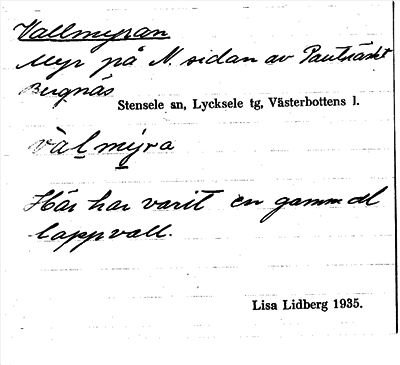 Vallmyran
Myr på N. sidan av Pauträsk
Bergnäs
Stensele sn, Lycksele tg, Västerbottens l.
val myra
Här har varit en gammal
lappvall.
Lisa Lidberg 1935.